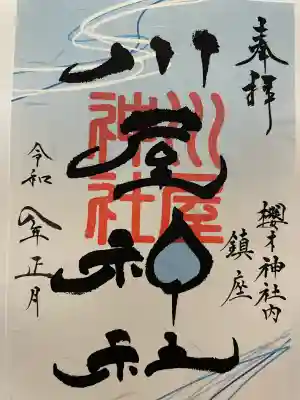 奉拝
櫻木神社内
鎮座
川屋神社
川屋神社
令和八年正月